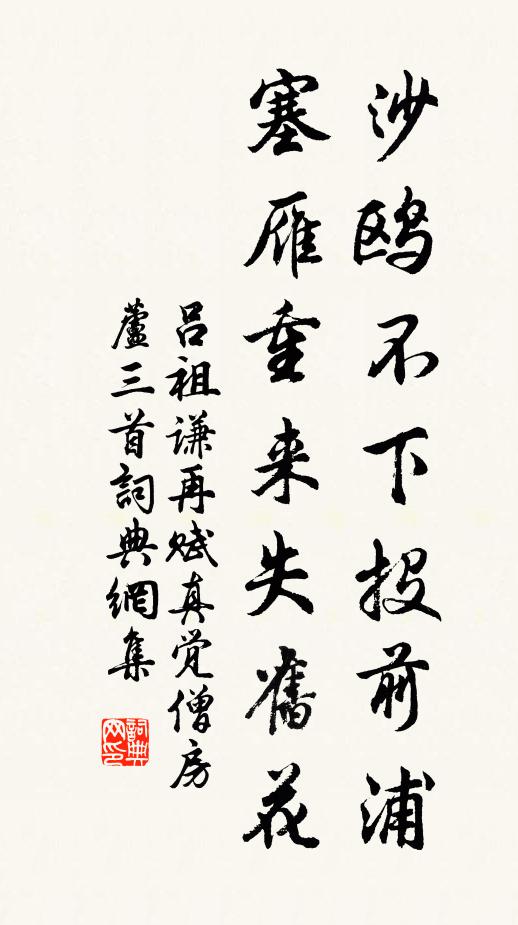 沙鸥不下投前浦
塞雁重来失舊花
吕祖谦再赋真觉僧房
蘆三首詞典網集
詞典
网印